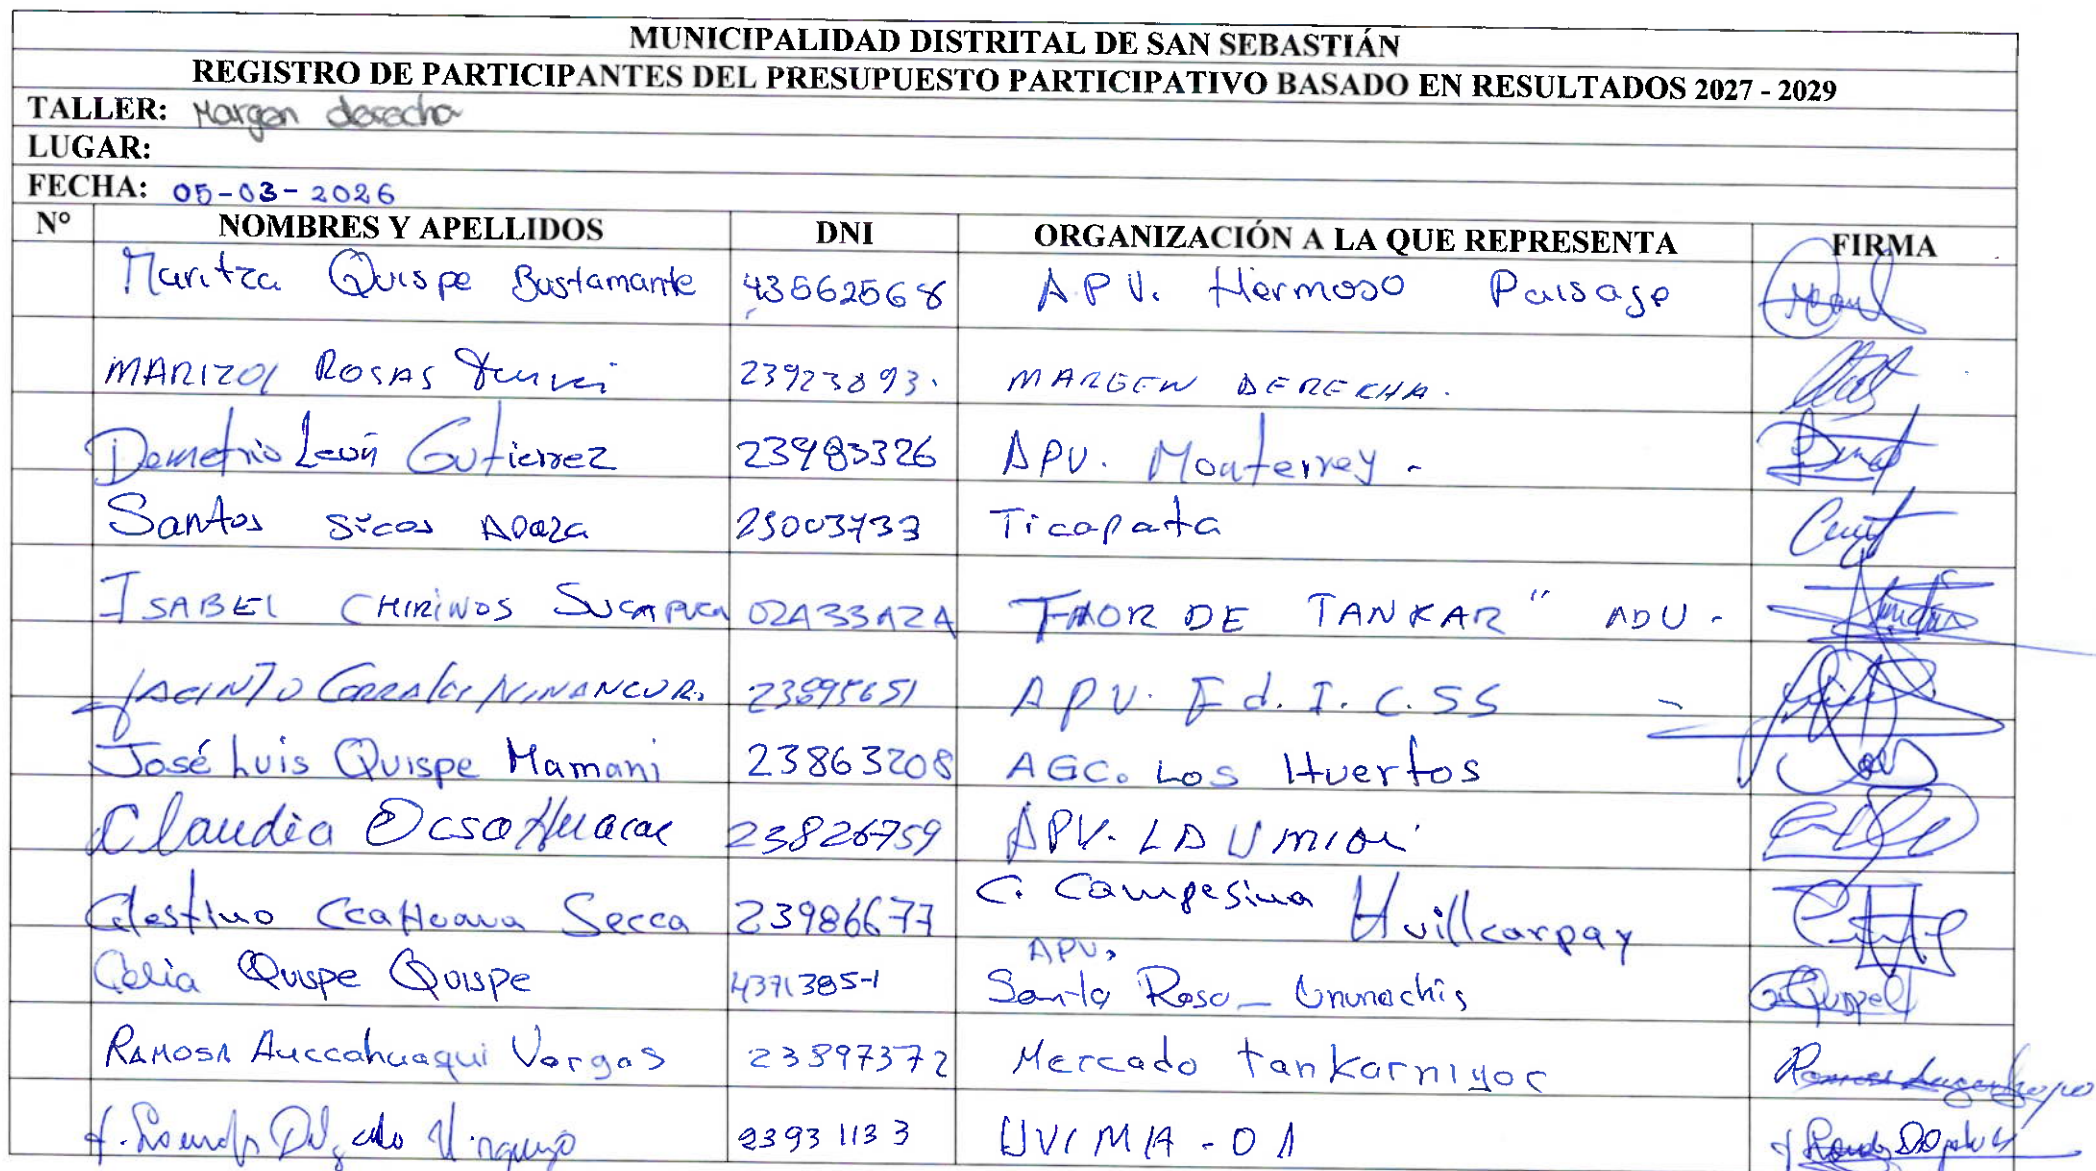 MUNICIPALIDAD DISTRITAL DE SAN SEBASTIÁN
REGISTRO DE PARTICIPANTES DEL PRESUPUESTO PARTICIPATIVO BASADO EN RESULTADOS 2027 - 2029
TALLER: Margen derecha
LUGAR:
FECHA: 05-03-2026
N° NOMBRES Y APELLIDOS DNI ORGANIZACIÓN A LA QUE REPRESENTA FIRMA
Maritza Quispe Bustamante 43562568 A.P.V. Hermoso Paisage
MARIZOL ROSAS 23923893. MARGEN DERECHA.
Demetrio León Gutierrez 23983326 APV. Monterrey -
Santos Sicos Apaza 25003733 Ticapata
ISABEL CHIRINOS SUCAPUCA 02433424 FLOR DE TANKAR" ADV -
JACINTO NINANCURO 23895651 A P V. Ed. I. C. SS
José Luis Quispe Mamani 23863208 AGC. Los Huertos
Claudia Ocsa Huacac 23826759 APV. LA UNION
Celestino Ccahuana Secca 23986677 C. Campesina Huillcarpay
Celia Quispe Quispe 43713851 APV. Santa Rosa - Ununachis
RAMOSA Auccahuaqui Vargas 23897372 Mercado tankarniyoc
Delgado 23931133 UVIMA - 01